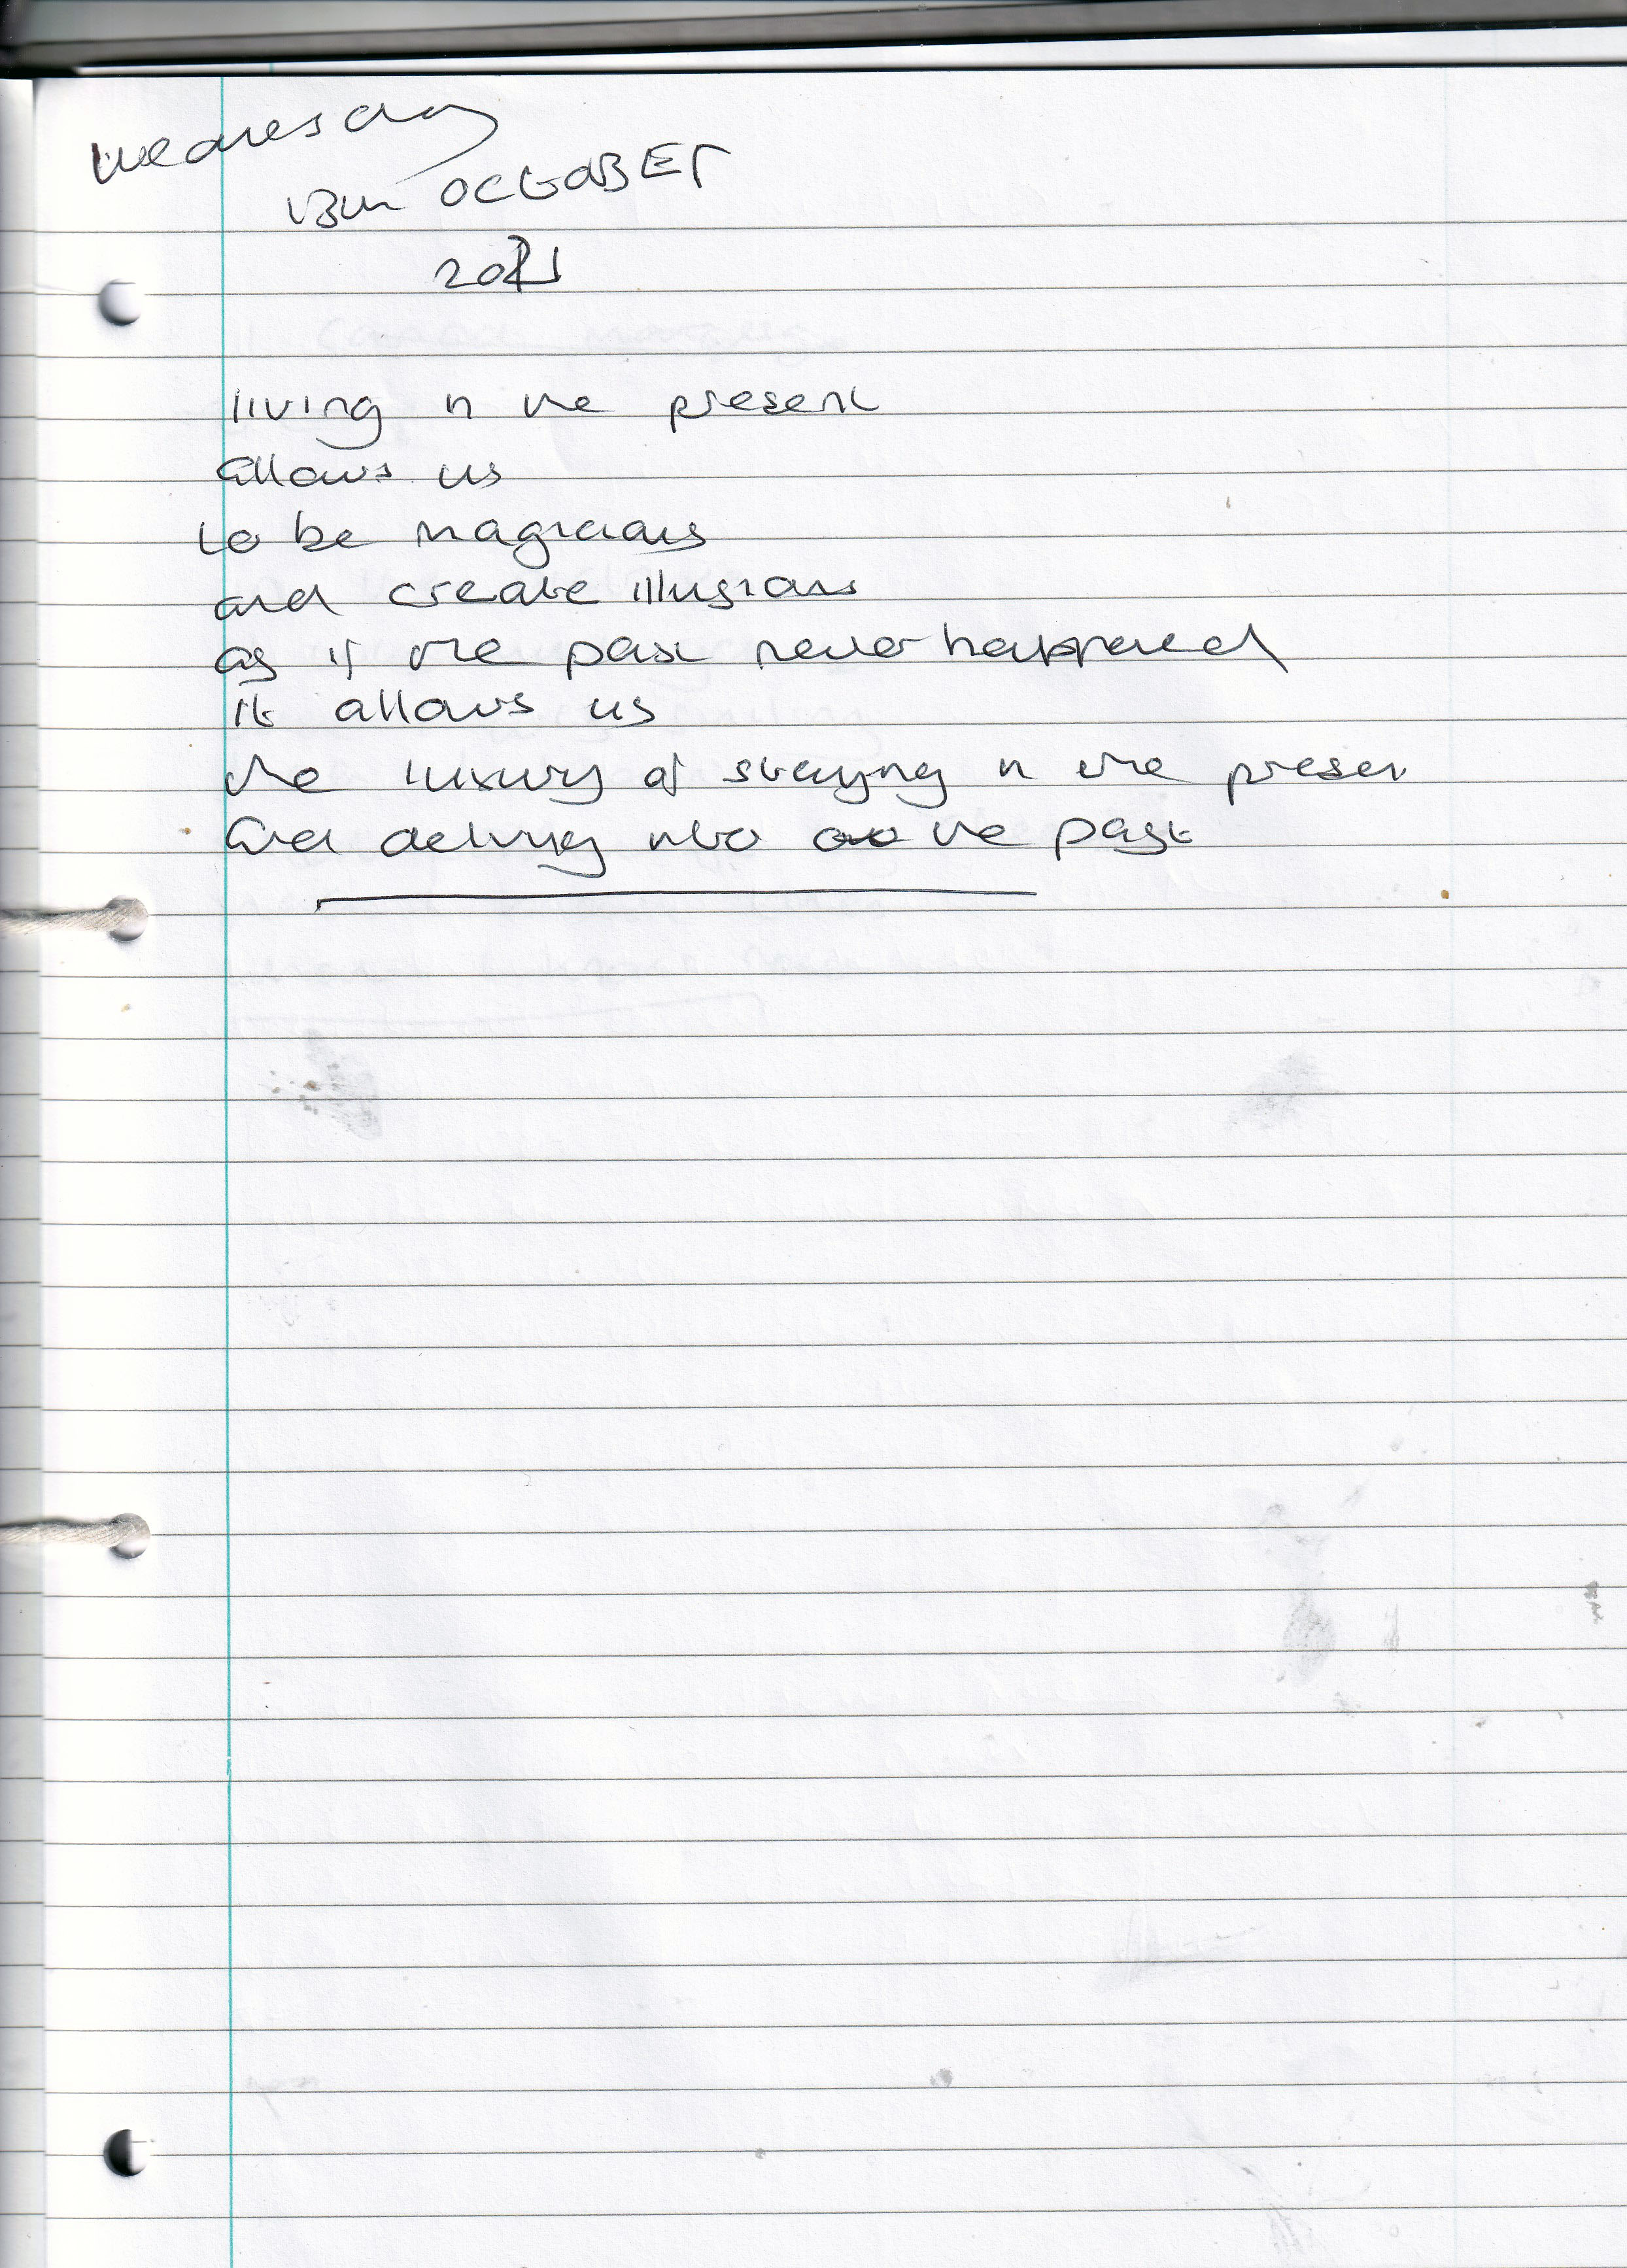 Wednesday
13th OCtOBEr
2021
living in the present
allows us
to be magicians
and create illusions
as if the past never happened
it allows us
the luxury of staying in the presen
and delving into the past